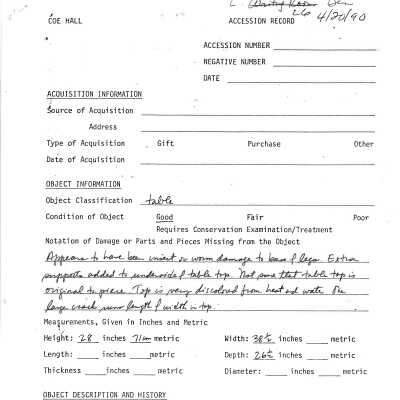 COE HALL
ACCESSION RECORD
4/20/90
ACCESSION NUMBER
NEGATIVE NUMBER
DATE
ACQUISITION INFORMATION
Source of Acquisition
Address
Type of Acquisition Gift Purchase Other
Date of Acquisition
OBJECT INFORMATION
Object Classification table
Condition of Object Good Fair Poor
Requires Conservation Examination/Treatment
Notation of Damage or Parts and Pieces Missing from the Object
Appears to have been insect or worm damage to base & legs. Extra
supports added to underside of table top. Not sure that table top is
original to piece. Top is very discolored from heat and water. One
large crack runs length & width in top.
Measurements, Given in Inches and Metric
Height: 28 inches 71cm metric Width: 38½ inches metric
Length: inches metric Depth: 26½ inches metric
Thickness inches metric Diameter: inches metric
OBJECT DESCRIPTION AND HISTORY